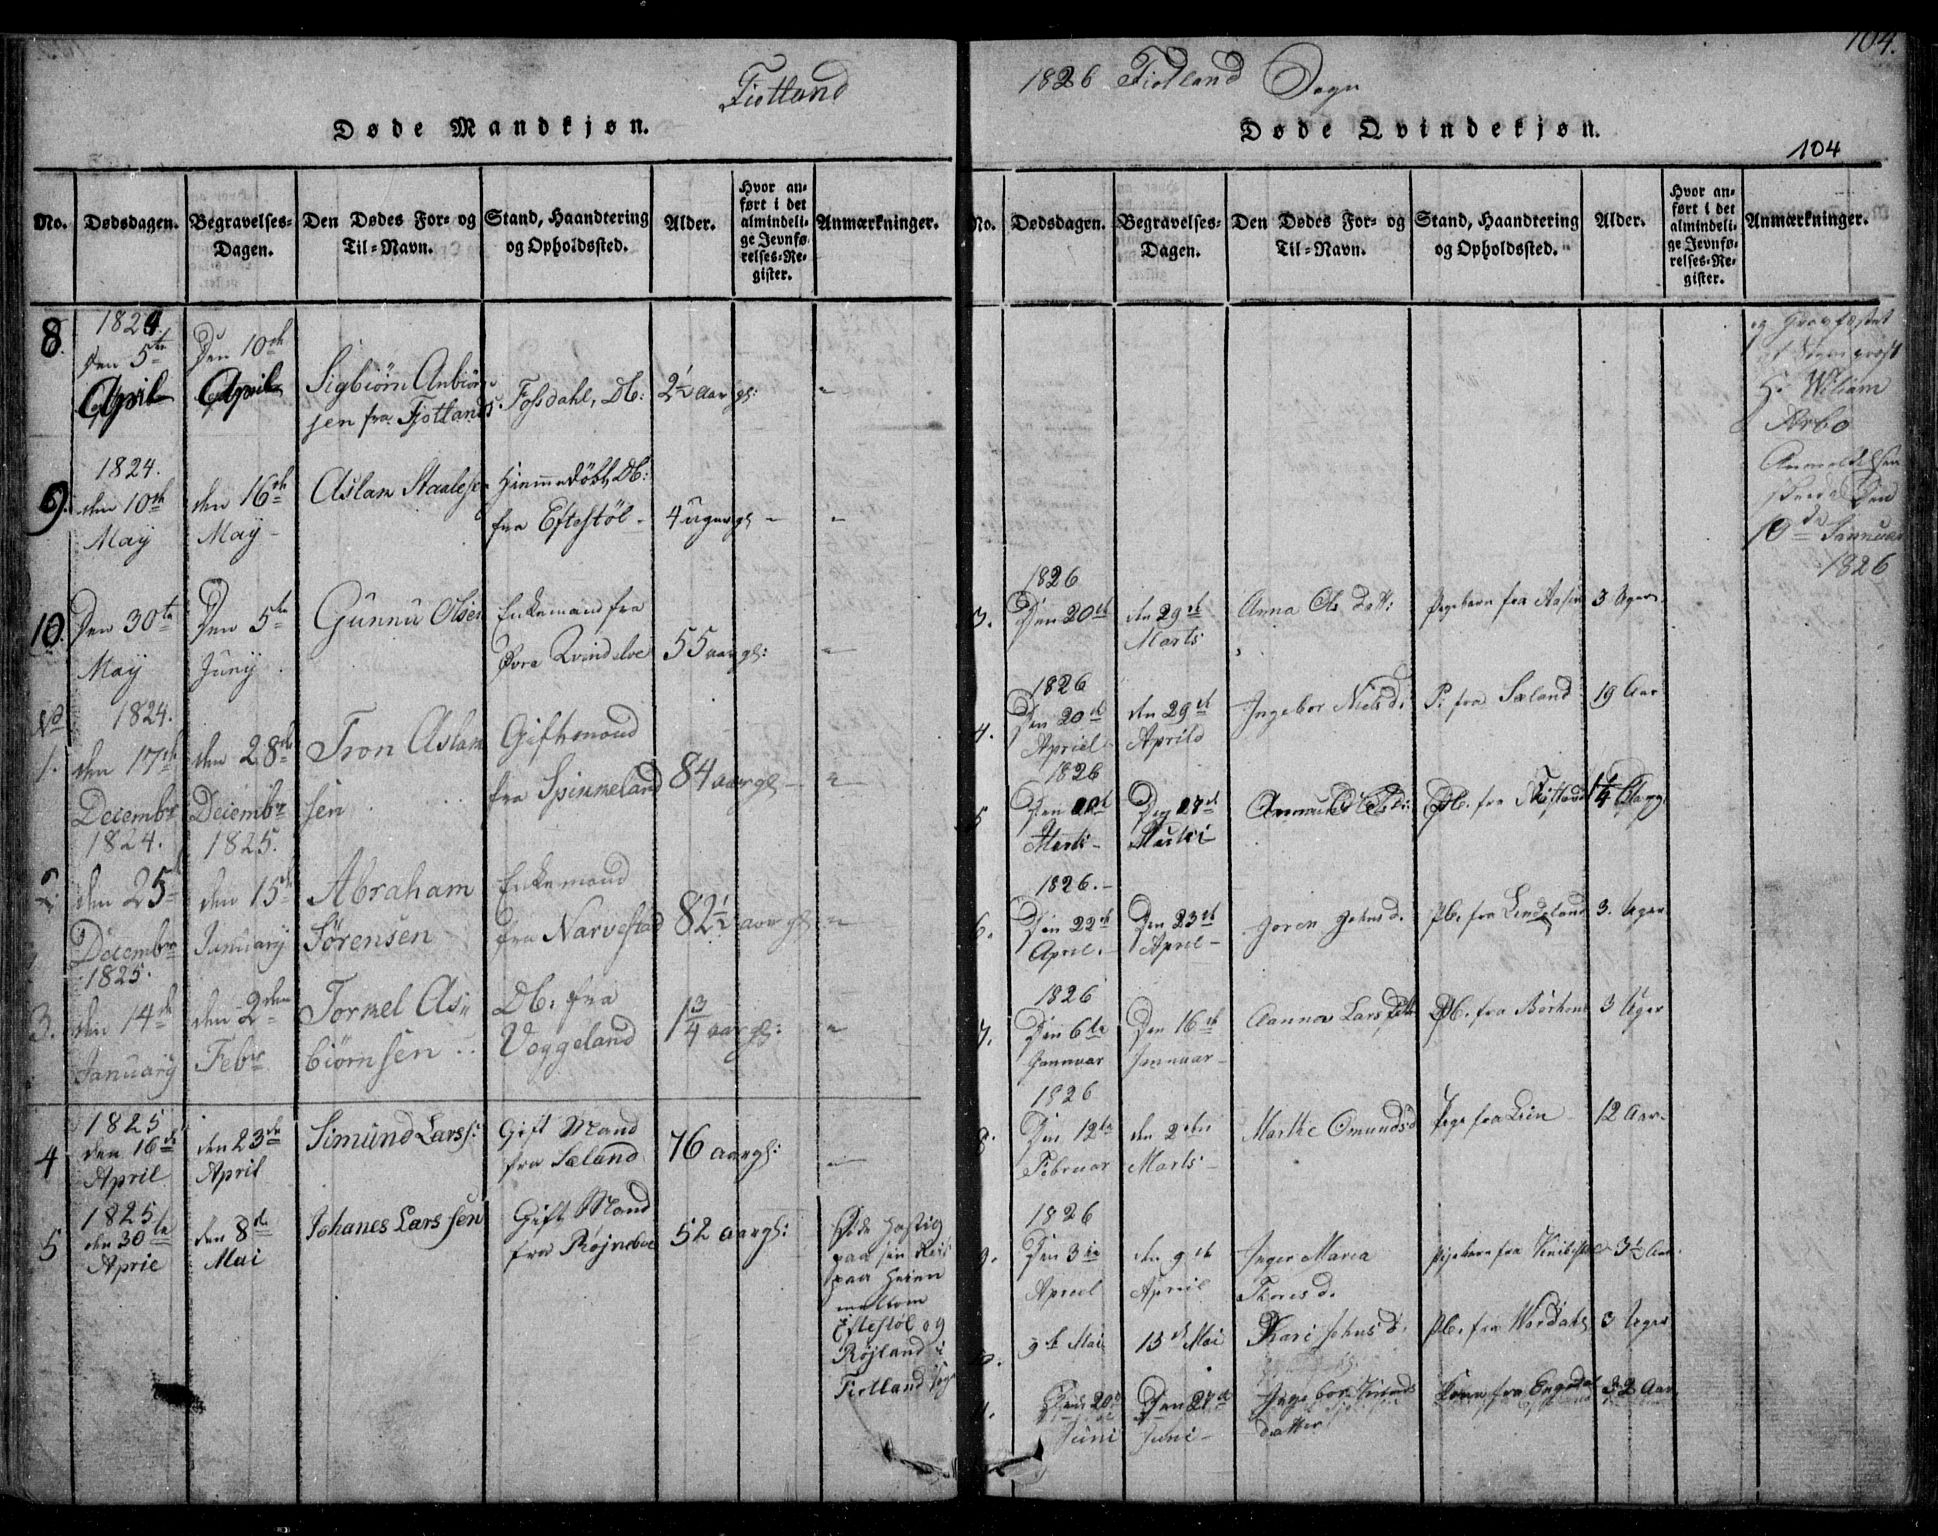 Fiotland
Døde Mandkjøn.
No. Dødsdagen. Begravelses-Dagen. Den Dødes For- og Til-Navn. Stand, Haandtering og Opholdssted. Alder. Hvor anført i det almindelige Jevnførelses-Register. Anmærkninger.
8. 1824. Den 5te April Den 10de April Sigbiørn Anbiørnsen fra Fjotland Fossdahl, Db: 2½ aar gl:
9. 1824. den 10de May den 16de May Aslam Staalesen Hiemmedøbt Db: fra Eftestøl 4 uger gl
10. Den 30te May Den 5te Juny Gunnu Olsen Enkemand fra Øvre Kvindelve 55 aar gl:
No
1. 1824. den 17de Decembr den 28de Decembr Tron Aslamsen Giftemand fra Spinkeland 84 aar gl
2. 1824. den 25d Decembr 1825. den 15de January Abraham Sørensen Enkemand fra Narvestad 82½ aar gl
3. 1825. den 14de January den 2den Febr Tormel Asbiørnsen Db. fra Veggeland 1¾ aar gl:
4 1825 den 16de April den 23de April Simund Larss: Gift Mand fra Sæland 76 aar gl:
5 1825 den 30te Aprie den 8de Mai Johanes Larssen Gift Mand fra Røjnebue 52 aar gl: Døde Hastig
paa sin Reise
paa Heien
mellom
Eftestøl og
Røjland i
Fiotland Sogn
104.
1826 Fiotland Sogn
Døde Qvindekjøn.
104
No. Dødsdagen. Begravelses-Dagen. Den Dødes For- og Til-Navn. Stand, Haandtering og Opholdssted. Alder. Hvor anført i det almindelige Jevnførelses-Register. Anmærkninger.
og Gravfæstet
H. Wiliam
Arbo
Anmeldelsen
skeede Den
10de Januar
1826
3. 1826 Den 20de den 29de Marts Anna Ols Datt: Pigebarn fra Aasen 3 Uger
4. 1826 Den 20de Apriel den 29de Aprild Ingebor Nielsd. P: fra Sæland 19 Aar
5 1826 Den 20de Marts Den 27de Martsi Anna Olsd: Pb. fra 1¼ Aar gl
6. 1826. Den 22de April. Den 23de April Joren Johnsd. Pb. fra Lindeland 3. Uger
7. 1826 Den 6te Januar Den 16de Januar Aanna Lars Datt Pb. fra Børkens 3 Uger
8. 1826 Den 12te Februar den 2den Marts Marthe Omundsd Pige fra Lien 12 Aar
9. 1826 Den 3die Apriel den 9de Apriel Inger Maria Thoresd. Pigebarn fra 3½ Aar
10. 9de Mai 13de Mai Kari Johnsd. Pb. fra Wordahl 3 Uger
11. Den 20de Juni Den 27de Juni Ingebor datter Kone fra 32 Aar